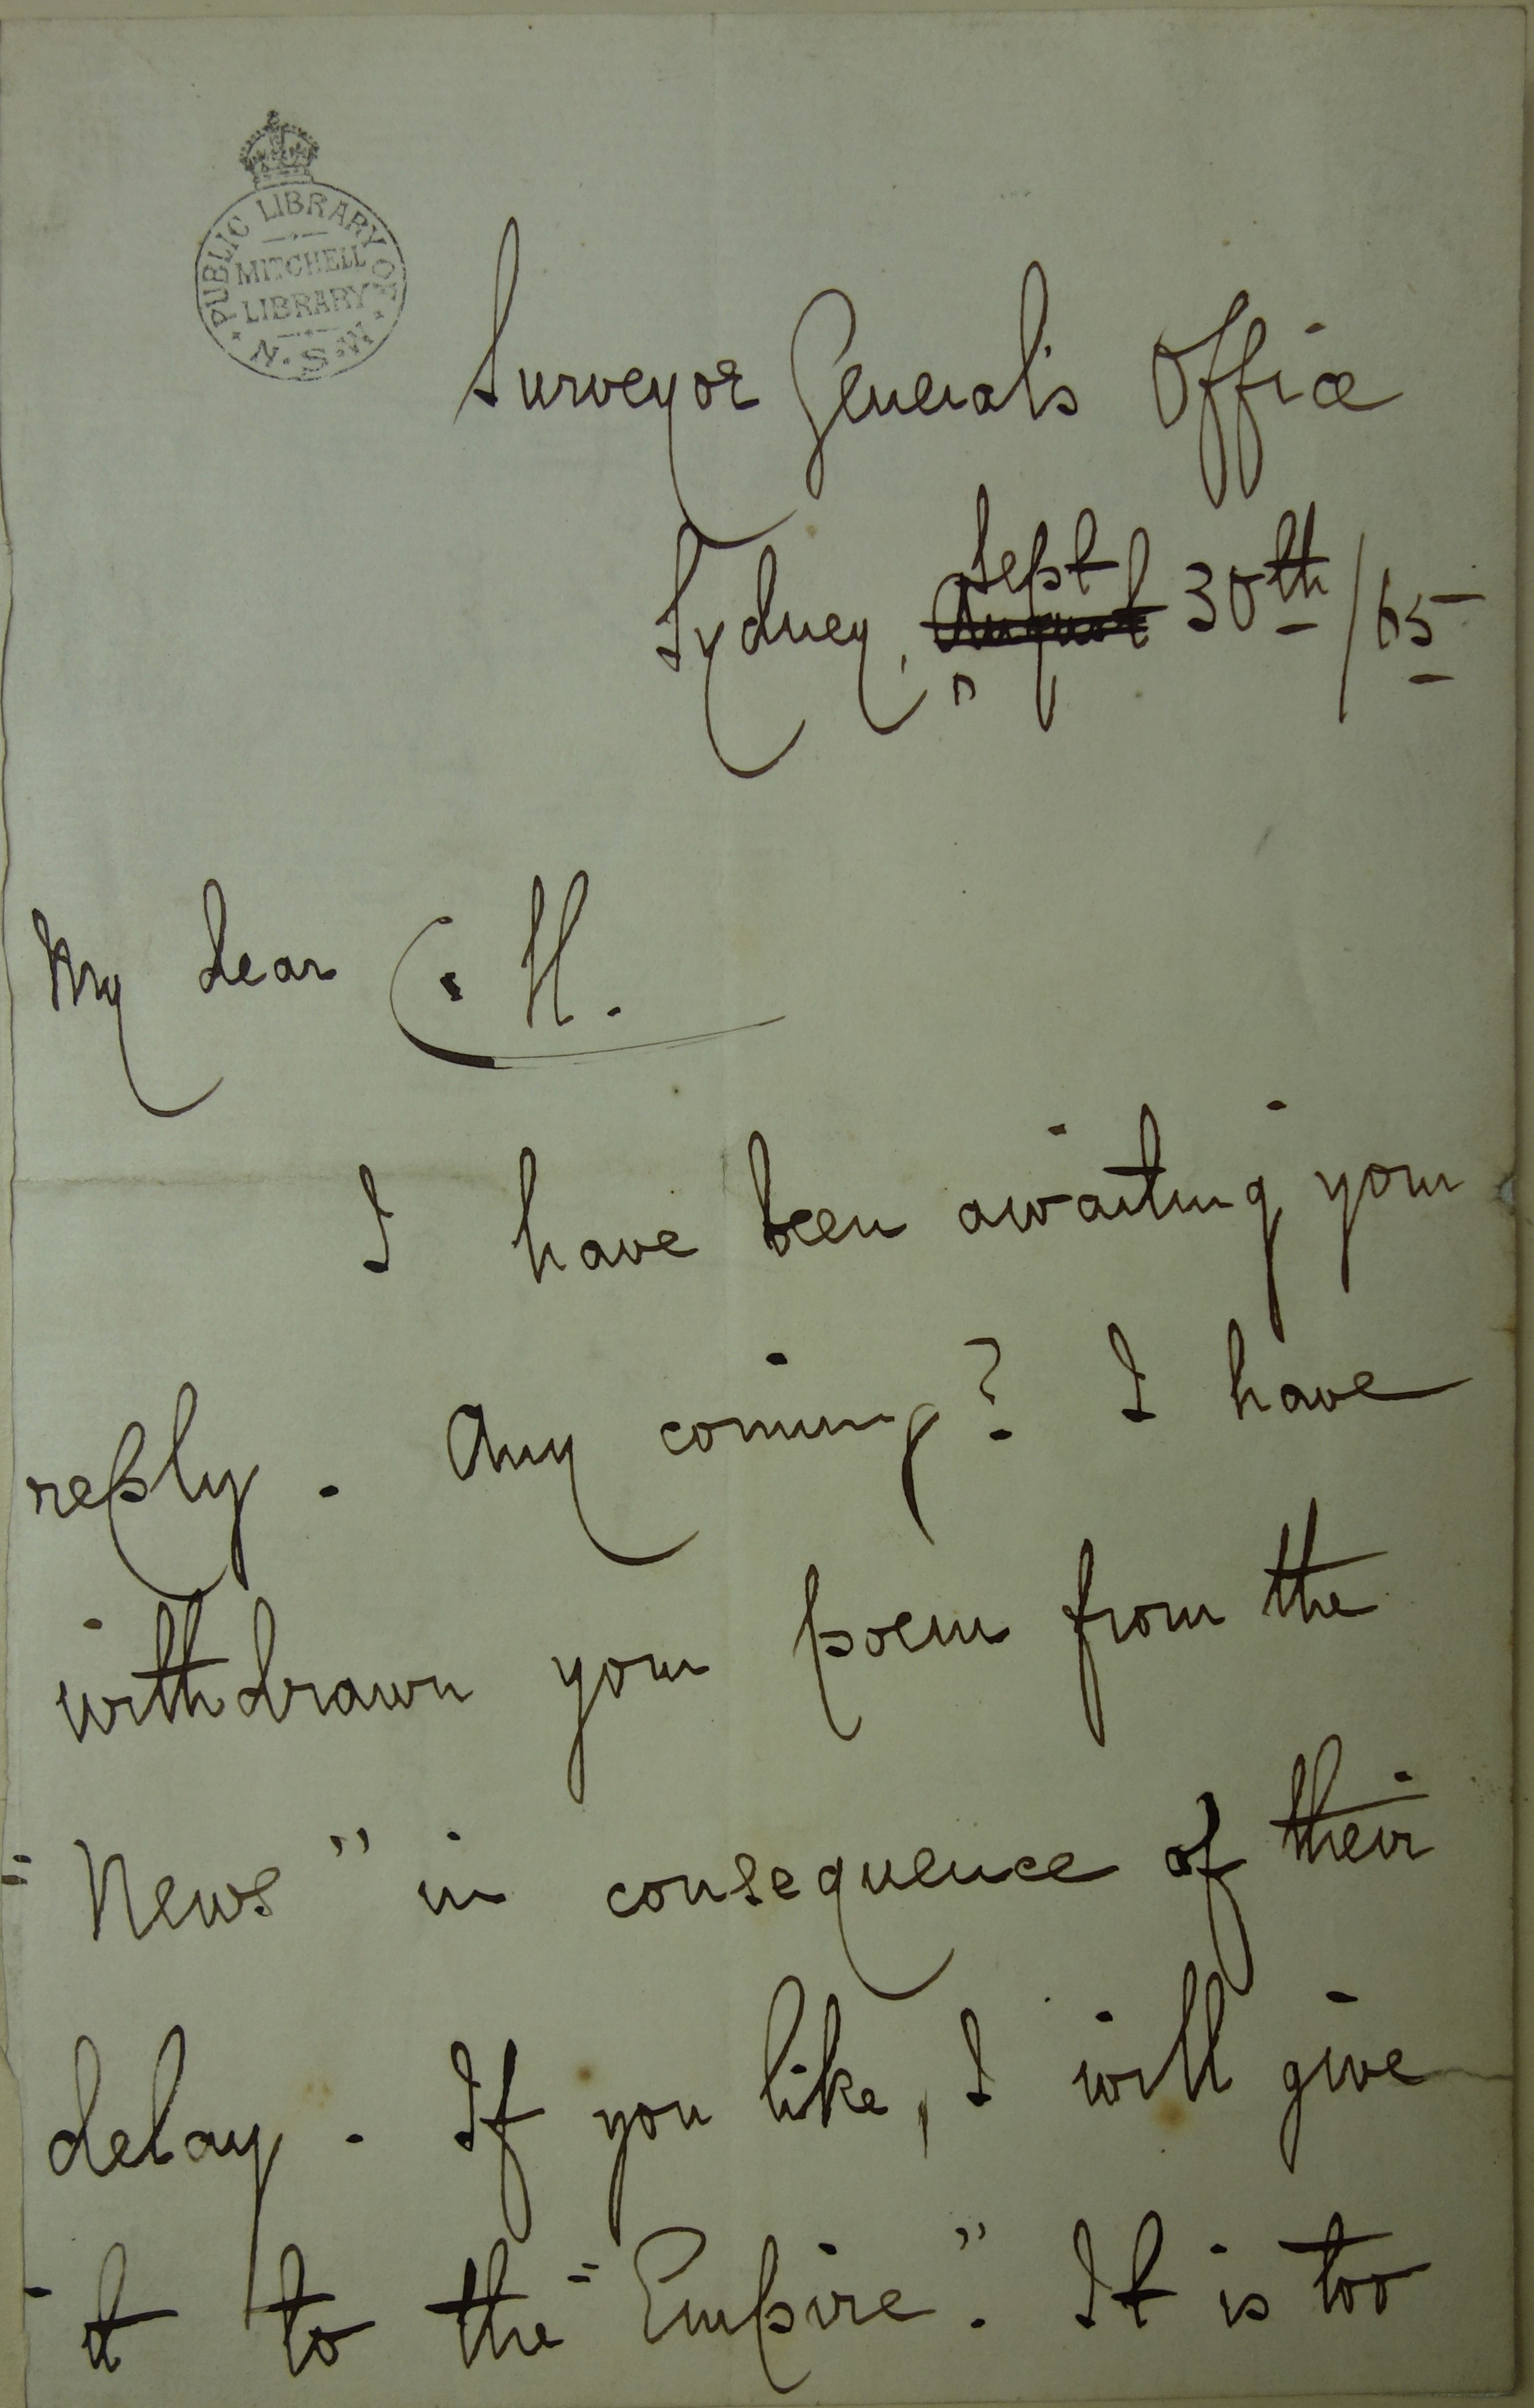 PUBLIC LIBRARY OF
MITCHELL
LIBRARY
N.S.W.
Surveyor General's Office
Sept
Sydney, August 30th/65
My dear C. H.
I have been awaiting your
reply. Any coming? I have
withdrawn your poem from the
"News" in consequence of their
delay. If you like, I will give
it to the "Empire". It is too